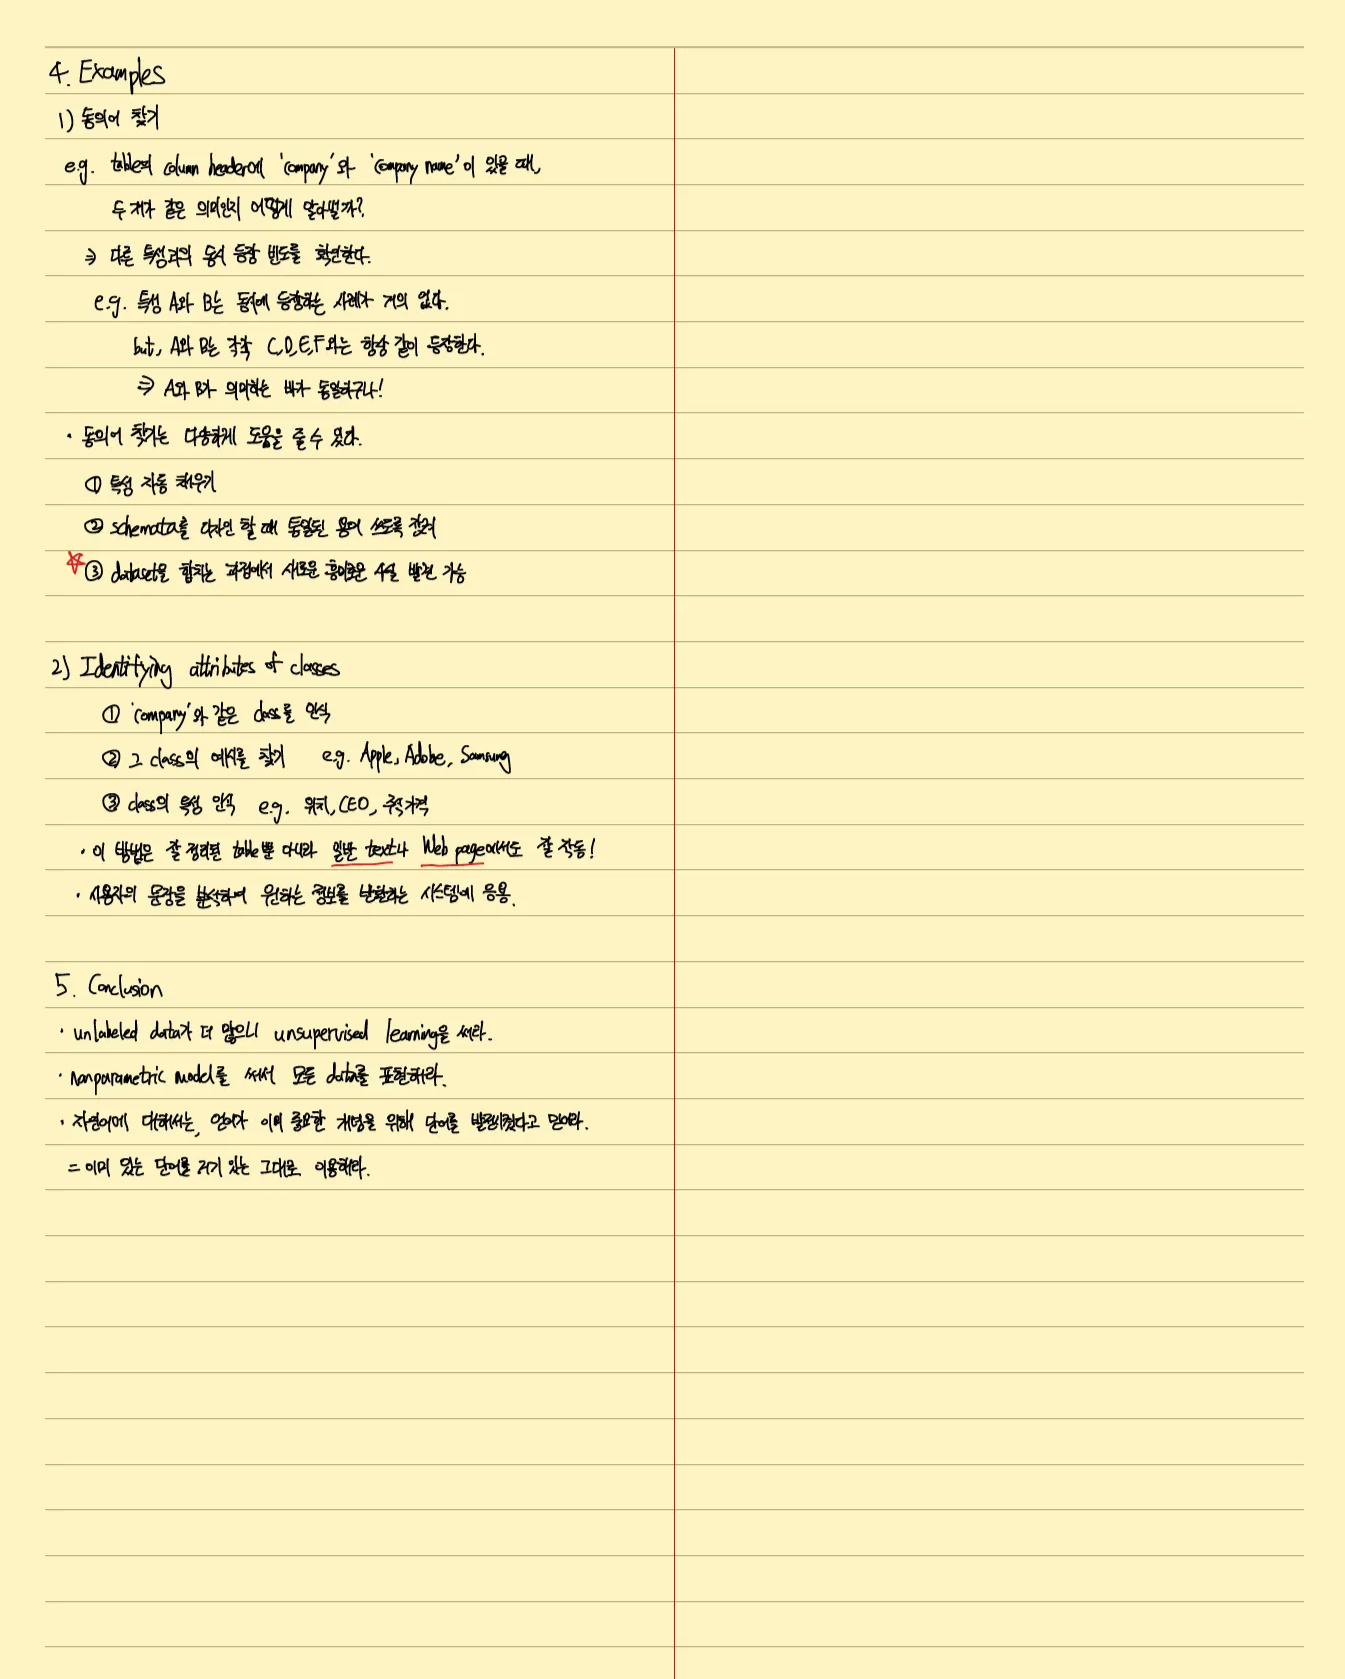 4. Examples
1) 동의어 찾기
e.g. table의 column header에 'company'와 'company name'이 있을 때,
두 개가 같은 의미인지 어떻게 알아낼까?
⇒ 다른 특성과의 동시 등장 빈도를 확인한다.
e.g. 특성 A와 B는 동시에 등장하는 사례가 거의 없다.
but, A와 B는 각각 C,D,E,F와는 항상 같이 등장한다.
⇒ A와 B가 의미하는 바가 동일하구나!
· 동의어 찾기는 다양하게 도움을 줄 수 있다.
① 특성 자동 채우기
② schemata를 디자인 할 때 통일된 용어 쓰도록 격려
☆③ dataset을 합치는 과정에서 새로운 흥미로운 사실 발견 가능
2) Identifying attributes of classes
① 'company'와 같은 class를 인식
② 그 class의 예시를 찾기 e.g. Apple, Adobe, Samsung
③ class의 특성 인식 e.g. 위치, CEO, 주식가격
· 이 방법은 잘 정리된 table뿐 아니라 일반 text나 Web page에서도 잘 작동!
· 사용자의 문장을 분석하여 원하는 정보를 반환하는 시스템에 응용.
5. Conclusion
· unlabeled data가 더 많으니 unsupervised learning을 써라.
· nonparametric model을 써서 모든 data를 표현해라.
· 자연어에 대해서는, 언어가 이미 중요한 개념을 위해 단어를 발전시켰다고 믿어라.
= 이미 있는 단어를 거기 있는 그대로 이용해라.